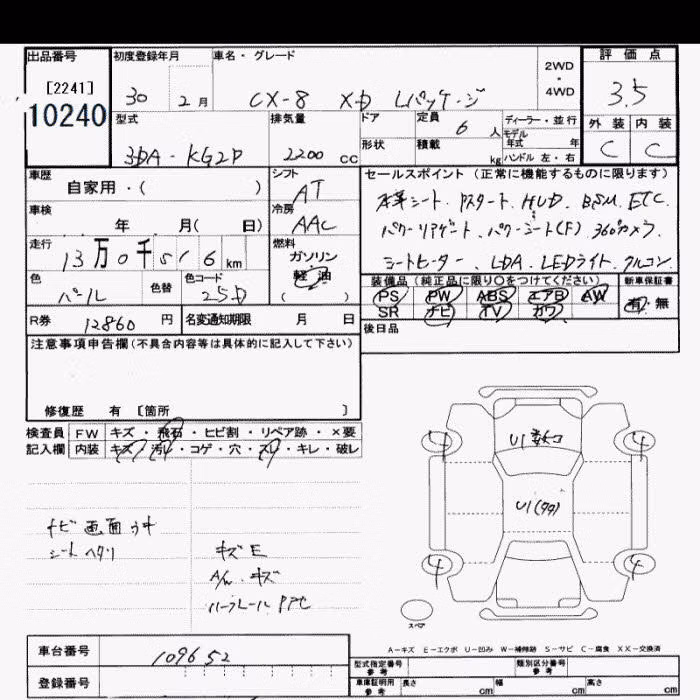 出品番号
[2241]
10240
初度登録年月
30 2月
車名・グレード
CX-8 XD Lパッケージ
2WD
・
4WD
評価点
3.5
外装 内装
C C
型式
3DA-KG2P
排気量
2200 cc
ドア
形状
定員 6人
積載 kg
ディーラー・並行
モデル年式 年
ハンドル 左・右
車歴
自家用・( )
シフト
AT
車検
年 月( 日)
冷房
AAC
走行
13万0千516km
燃料
ガソリン
軽油
( )
色
パール
色替
色コード
25D
R券 12860 円
名変通知期限 月 日
セールスポイント(正常に機能するものに限ります)
本革シート. Pスタート. HUD. BSM. ETC.
パワーリアゲート. パワーシート(F) 360°カメラ
シートヒーター. LDA. LEDライト. クルコン
装備品(純正品に限り○をつけてください)
PS PW ABS エアB AW
SR ナビ TV カワ
新車保証書
有・無
後日品
注意事項申告欄(不具合内容等は具体的に記入して下さい)
修復歴 有 [箇所 ]
検査員記入欄
FW キズ・飛石・ヒビ割・リペア跡・×要
内装 キズ・汚レ・コゲ・穴・スレ・キレ・破レ
ナビ画面ウキ
シートヘタリ
キズE
A/W キズ
U1
U1(タタ)
4
4
4
4
スペア
A-キズ E-エクボ U-凹み W-補修跡 S-サビ C-腐食 XX-交換済
車台番号 109652
登録番号
型式指定番号 参考
類別区分番号 参考
車庫証明用 参考 長さ cm 幅 cm 高さ cm